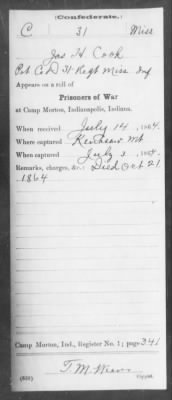 (Confederate.)
C 31 Miss
Jas H. Cook
Pvt Co D 31 Regt Miss Inf
Appears on a roll of
Prisoners of War
at Camp Morton, Indianapolis, Indiana.
When received July 14, 1864.
Where captured Kenesaw Mt
When captured July 3, 1864.
Remarks, charges, &c. Died Oct 21
1864
Camp Morton, Ind., Register No. 1; page 341
T. M.
Copyist.